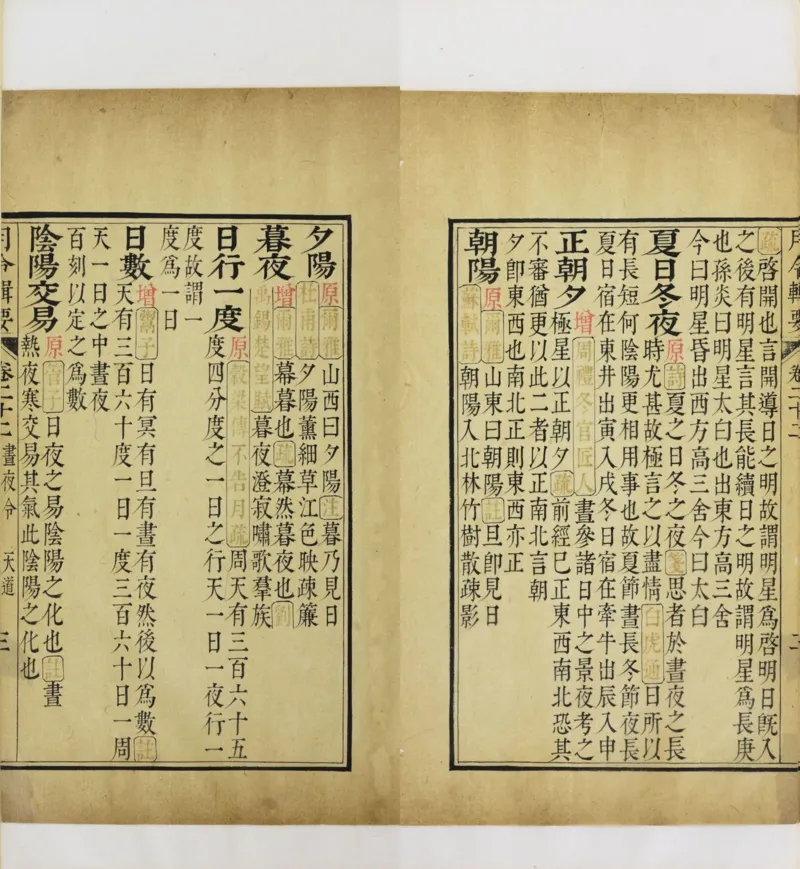 月令輯要 卷二十二 二
疏啓開也言開導日之明故謂明星爲啓明日旣入
之後有明星言其長能續日之明故謂明星爲長庚
也孫炎曰明星太白也出東方高三舍
今曰明星昏出西方高三舍今曰太白
夏日冬夜原詩夏之日冬之夜箋思者於晝夜之長
時尤甚故極言之以盡情白虎通日所以
有長短何陰陽更相用事也故夏節晝長冬節夜長
夏日宿在東井出寅入戌冬日宿在牽牛出辰入申
正朝夕增周禮冬官匠人晝參諸日中之景夜考之
極星以正朝夕疏前經已正東西南北恐其
不審猶更以此二者以正南北言朝
夕卽東西也南北正則東西亦正
朝陽原爾雅山東曰朝陽註旦卽見日
蘇軾詩朝陽入北林竹樹散疎影
夕陽原爾雅山西曰夕陽注暮乃見日
杜甫詩夕陽薰細草江色映疎簾
暮夜增爾雅幕暮也疏幕然暮夜也劉
禹錫楚望賦暮夜澄寂嘯歌羣族
日行一度原穀梁傳不告月疏周天有三百六十五
度四分度之一日之行天一日一夜行一
度故謂一
度爲一日
日數增鬻子日有冥有旦有晝有夜然後以爲數註
天有三百六十度一日一度三百六十日一周
天一日之中晝夜
百刻以定之爲數
陰陽交易原管子日夜之易陰陽之化也註晝
熱夜寒交易其氣此陰陽之化也
月令輯要 卷二十二 晝夜令 天道 三